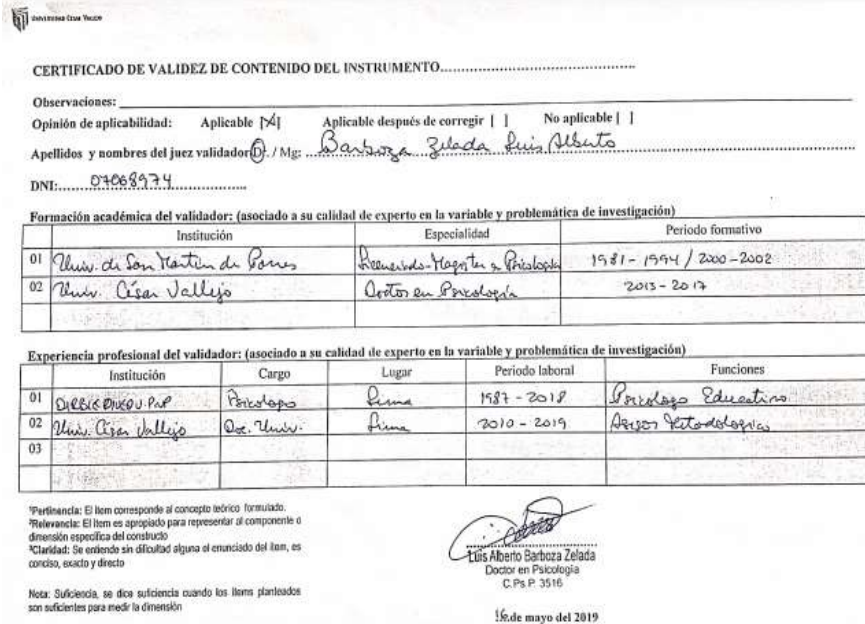 UNIVERSIDAD CÉSAR VALLEJO
CERTIFICADO DE VALIDEZ DE CONTENIDO DEL INSTRUMENTO................................................
Observaciones:
Opinión de aplicabilidad: Aplicable [X] Aplicable después de corregir [ ] No aplicable [ ]
Apellidos y nombres del juez validador Dr. / Mg: Barboza Zelada Luis Alberto
DNI: 07068974
Formación académica del validador: (asociado a su calidad de experto en la variable y problemática de investigación)
Institución Especialidad Periodo formativo
01 Univ. de San Martin de Porres Licenciado-Magister en Psicología 1981-1994 / 2000-2002
02 Univ. César Vallejo Doctor en Psicología 2013-2017
Experiencia profesional del validador: (asociado a su calidad de experto en la variable y problemática de investigación)
Institución Cargo Lugar Periodo laboral Funciones
01 PNP Psicologo Lima 1987-2018 Psicologo Educativo
02 Univ. César Vallejo Doc. Univ. Lima 2010-2019 Asesor Metodologico
03
¹Pertinencia: El ítem corresponde al concepto teórico formulado.
²Relevancia: El ítem es apropiado para representar al componente o
dimensión específica del constructo
³Claridad: Se entiende sin dificultad alguna el enunciado del ítem, es
conciso, exacto y directo
Nota: Suficiencia, se dice suficiencia cuando los ítems planteados
son suficientes para medir la dimensión
Luis Alberto Barboza Zelada
Doctor en Psicología
C.Ps.P. 3516
16 de mayo del 2019